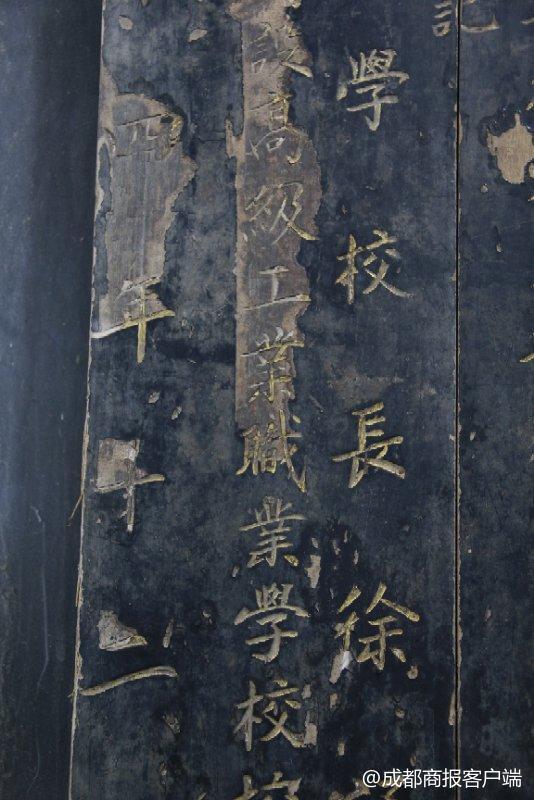 記
學校長徐
設高級工業職業學校校
四年十二
@成都商报客户端